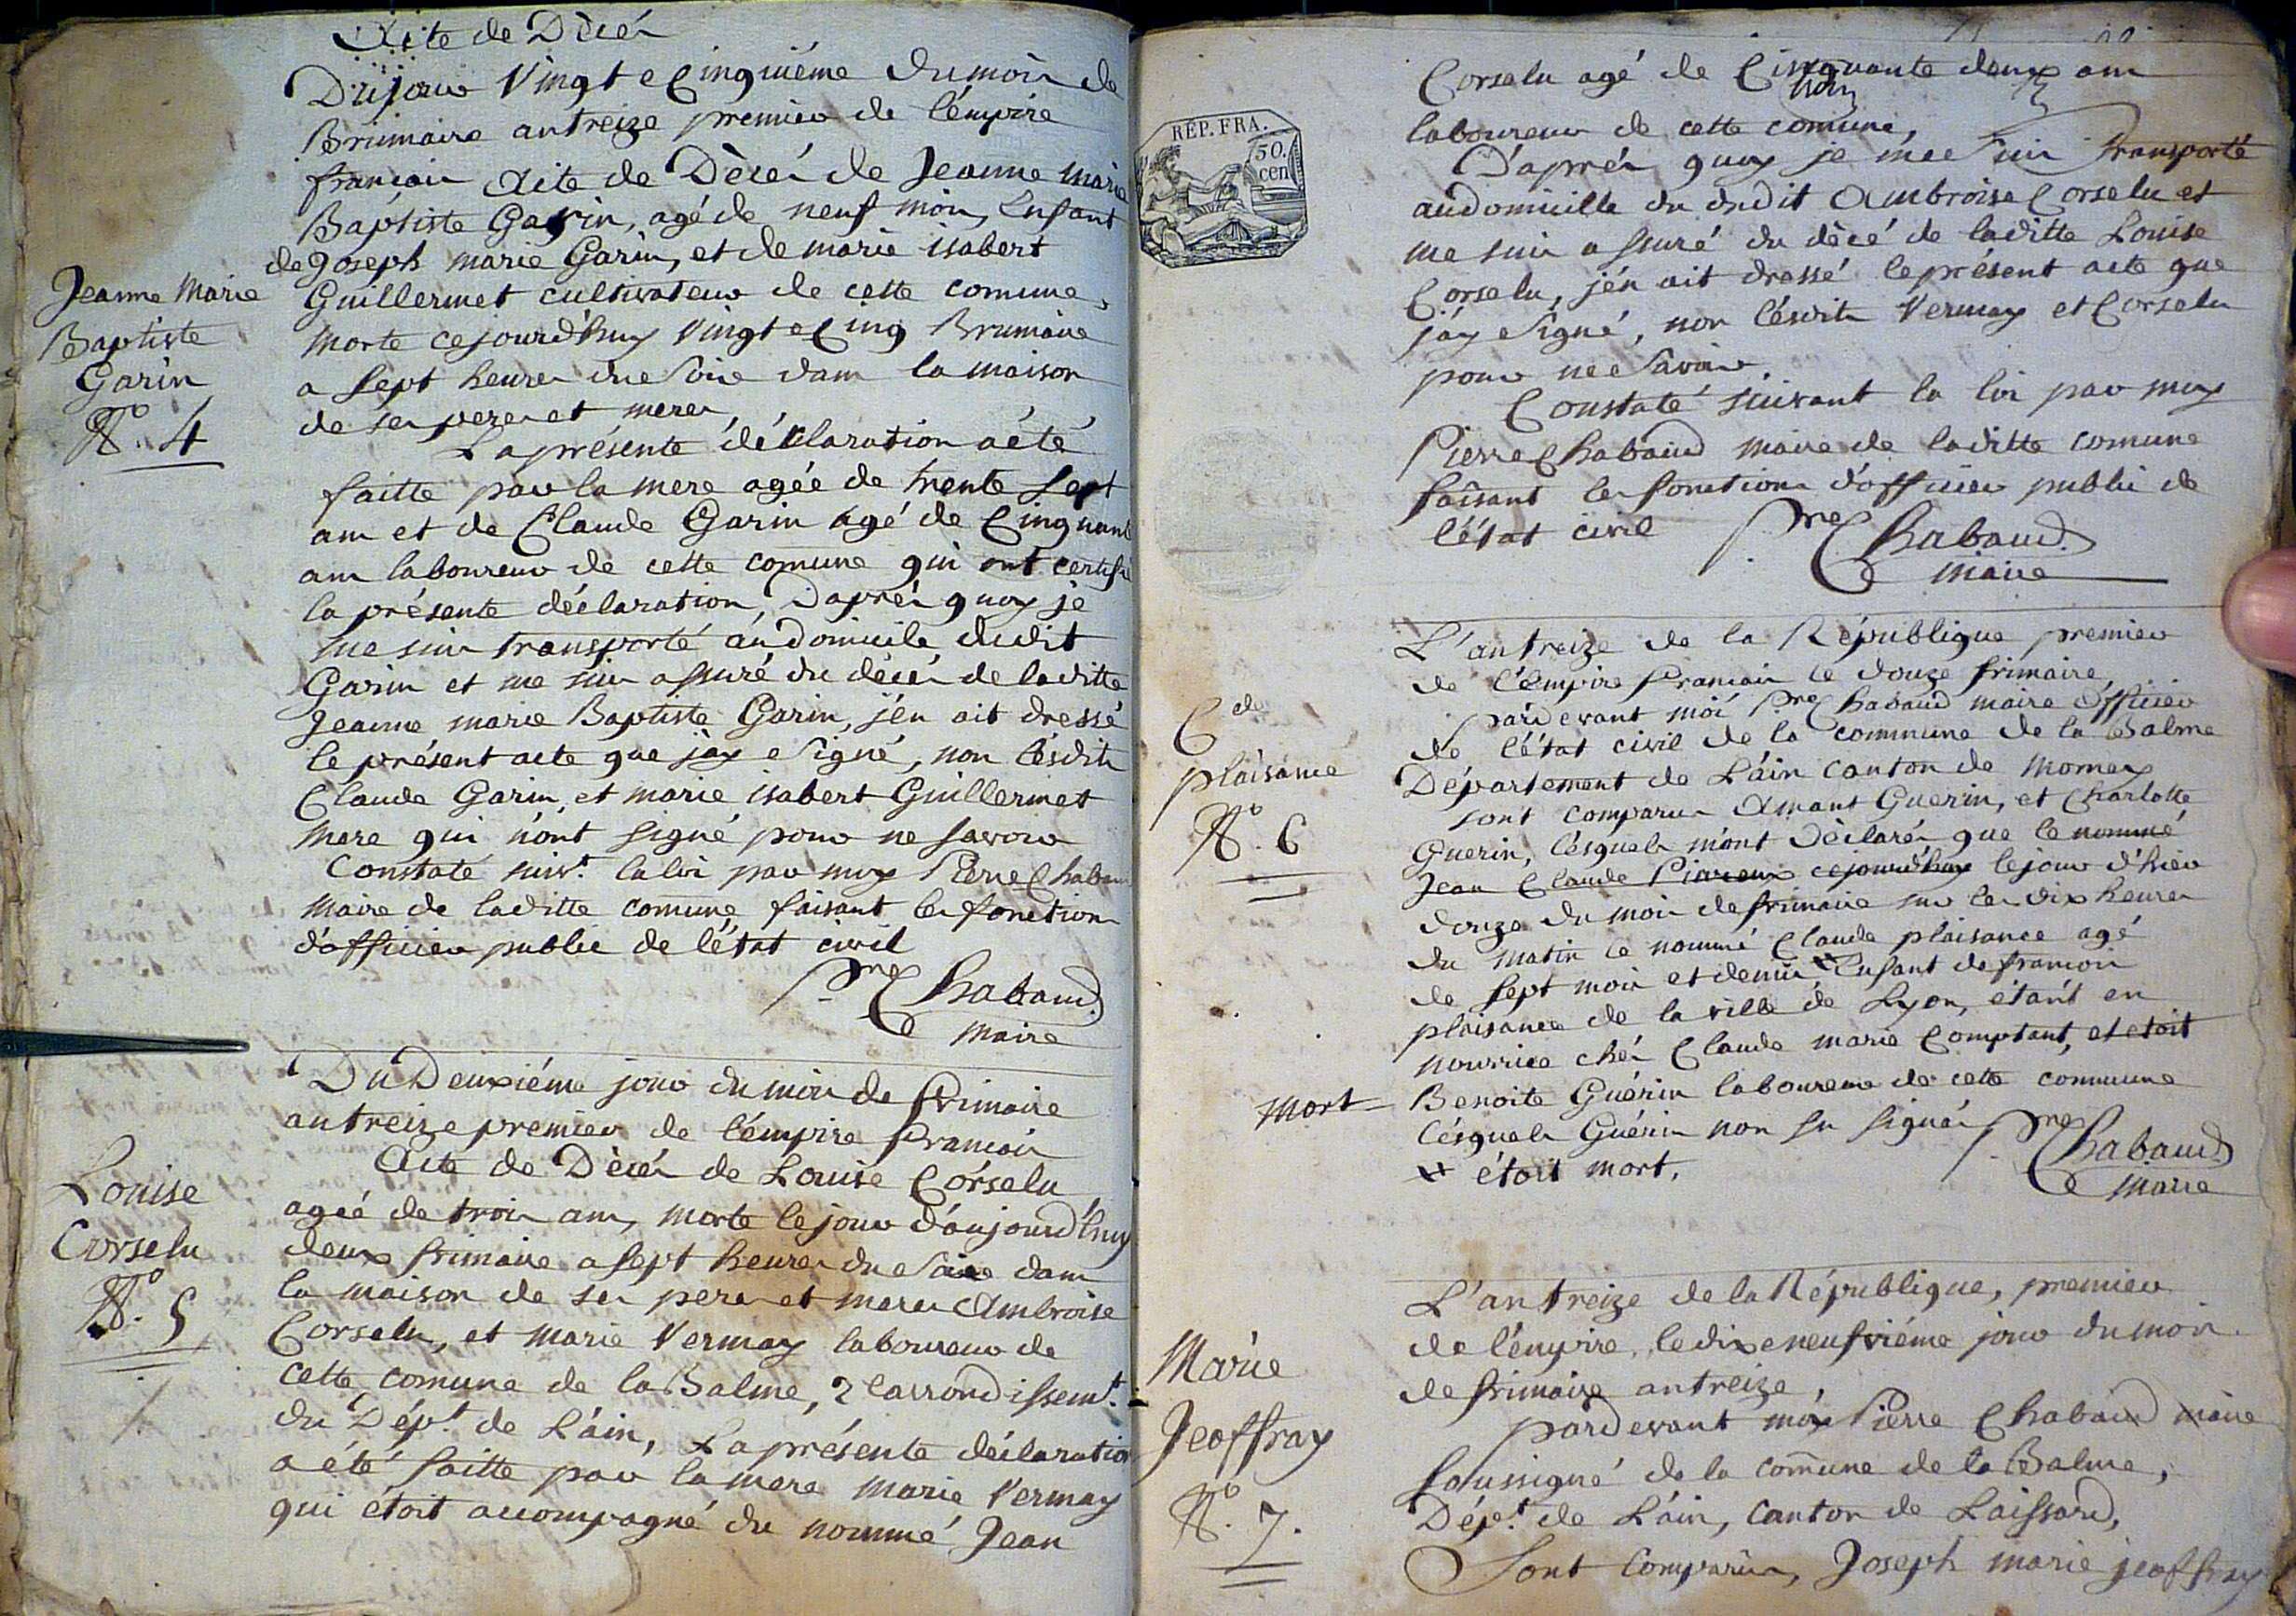 Acte de Décés
Du jour Vingt e Cinquiéme du mois de
Brumaire an treize premier de l'émpire
francois Acte de Dècés de Jeanne Marie
Baptiste Garin, agé de neuf mois, Enfant
de Joseph marie Garin, et de marie isabert
Guillermet cultivateur de cette comune,
morte cejourd'huy Vingt e Cinq Brumaire
a Sept heures du e Soire dans la maison
de ses peres et meres,
Jeanne Marie
Baptiste
Garin
N.º 4
La présente déclaration a été
faitte par la mere agée de trente Sept
ans et de Claude Garin agé de Cinquante
ans laboureur de cette comune qui ont certifié
la présente déclaration, D'aprés quoy je
me suis transporté au domicile dudit
Garin et me suis assuré du décés de laditte
Jeanne marie Baptiste Garin, j'én ait dressé
le présent acte que j'ay e Signé, non lésdits
Claude Garin, et marie isabert Guillermet
mere qui n'ont signé pour ne savoir
Constaté suiv.t la loi par moy Pierre Chabaud
Maire de laditte comune faisant les fonctions
d'officier public de l'état civil
P.re Chabaud
Maire
Du Deuxiéme jour du mois de frimaire
an treize premier de l'émpire francois
Acte de Décés de Louise Corselu
agée de trois ans, morte le jour d'aujourd'huy
deux frimaire a sept heures du e Soire dans
la maison de ses peres et meres Ambroise
Corselu, et Marie Vermay laboureur de
cette comune de la Balme, 2 l'arrondissem.t
du Dép.t de L'áin, La présente déclaration
a été faitte par la mere marie Vermay
qui étoit accompagné du nommé Jean
Louise
Corselu
N.º 5
RÉP. FRA.
50.
cen
Corselu agé de Cinquante deux ans
laboureur de cette comune,
D'aprés quoy je me e suis transporté
au domicille du dudit Ambroise Corselu et
me suis assuré du dècé de laditte Louise
Corselu, j'én ait dressé le présent acte que
j'ay e Signé, non lésdits Vermay et Corselu
pour ne e Savoir.
Constaté suivant la loi par moy
Pierre Chabaud maire de laditte comune
faisant les fonctions d'officier public de
l'état civil
P.re Chabaud
Maire
L'an treize de la République premier
de l'émpire francois le douze frimaire,
pardevant moi P.re Chabaud maire officier
de l'état civil de la commune de la Balme
Département de L'áin canton de Mornay
sont comparus Amant Guerin, et Charlotte
Guerin, lésquels m'ont Dèclarés que le nommé
Jean Claude cejourd'huy le jour d'hier
douze du mois de frimaire sur les dix heures
du matin le nommé Claude plaisance agé
de sept mois et demis x Enfant de francois
plaisance de la ville de Lyon, étant en
nourrice chés Claude marie Comptant, et étoit
mort - Benoite Guérin laboureurs de cette commune
lésquels Guérin non su signés
x étoit mort.
P.re Chabaud
Maire
C.de
plaisance
N.º 6
L'an treize de la République, premier
de l'émpire, le dix e neufviéme jour du mois
de frimaire an treize,
pardevant moy Pierre Chabaud maire
soussigné de la comune de la Balme,
Dép.t de L'áin, Canton de Laissard,
Sont Comparus, Joseph marie jeoffray
Marie
Jeoffray
N.º 7.